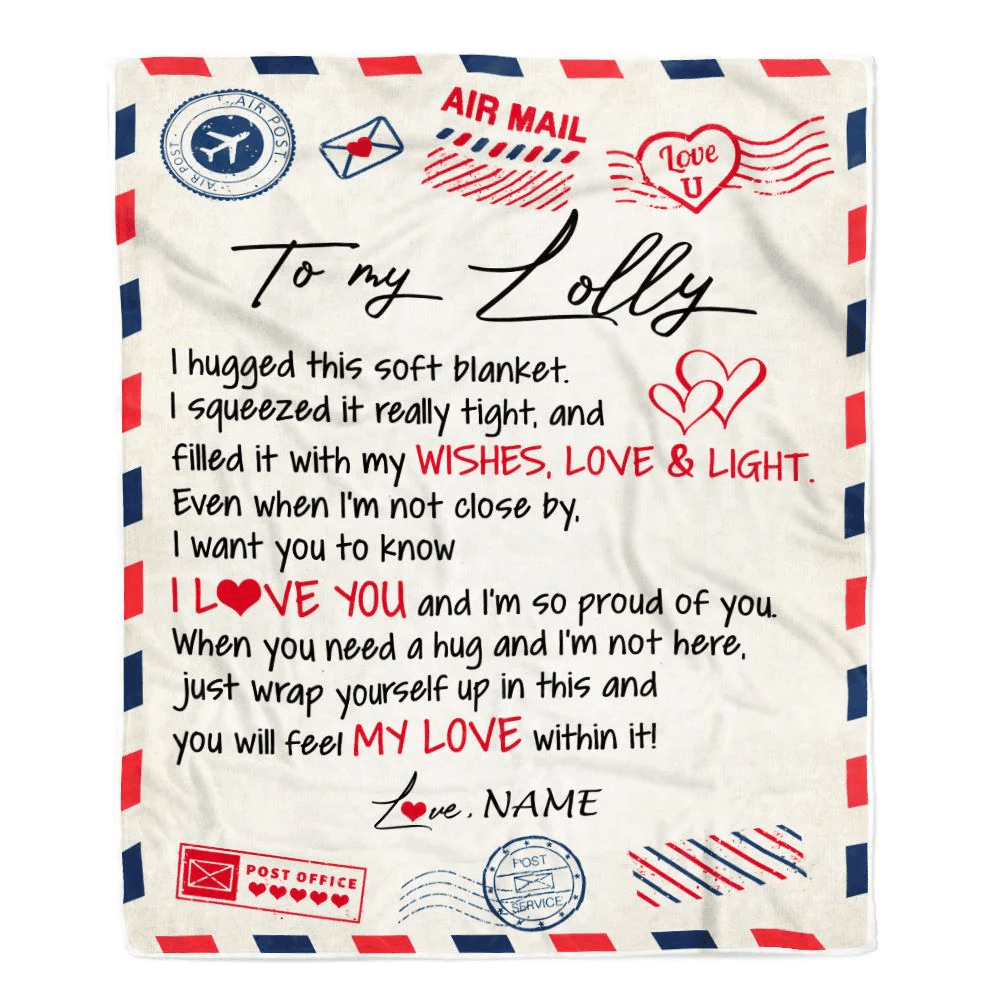 AIR POST
· AIR POST ·
AIR MAIL
Love
U
To my Lolly
I hugged this soft blanket.
I squeezed it really tight, and
filled it with my WISHES, LOVE & LIGHT.
Even when I'm not close by,
I want you to know
I L❤VE YOU and I'm so proud of you.
When you need a hug and I'm not here,
just wrap yourself up in this and
you will feel MY LOVE within it!
L❤ve, NAME
POST OFFICE
POST
SERVICE